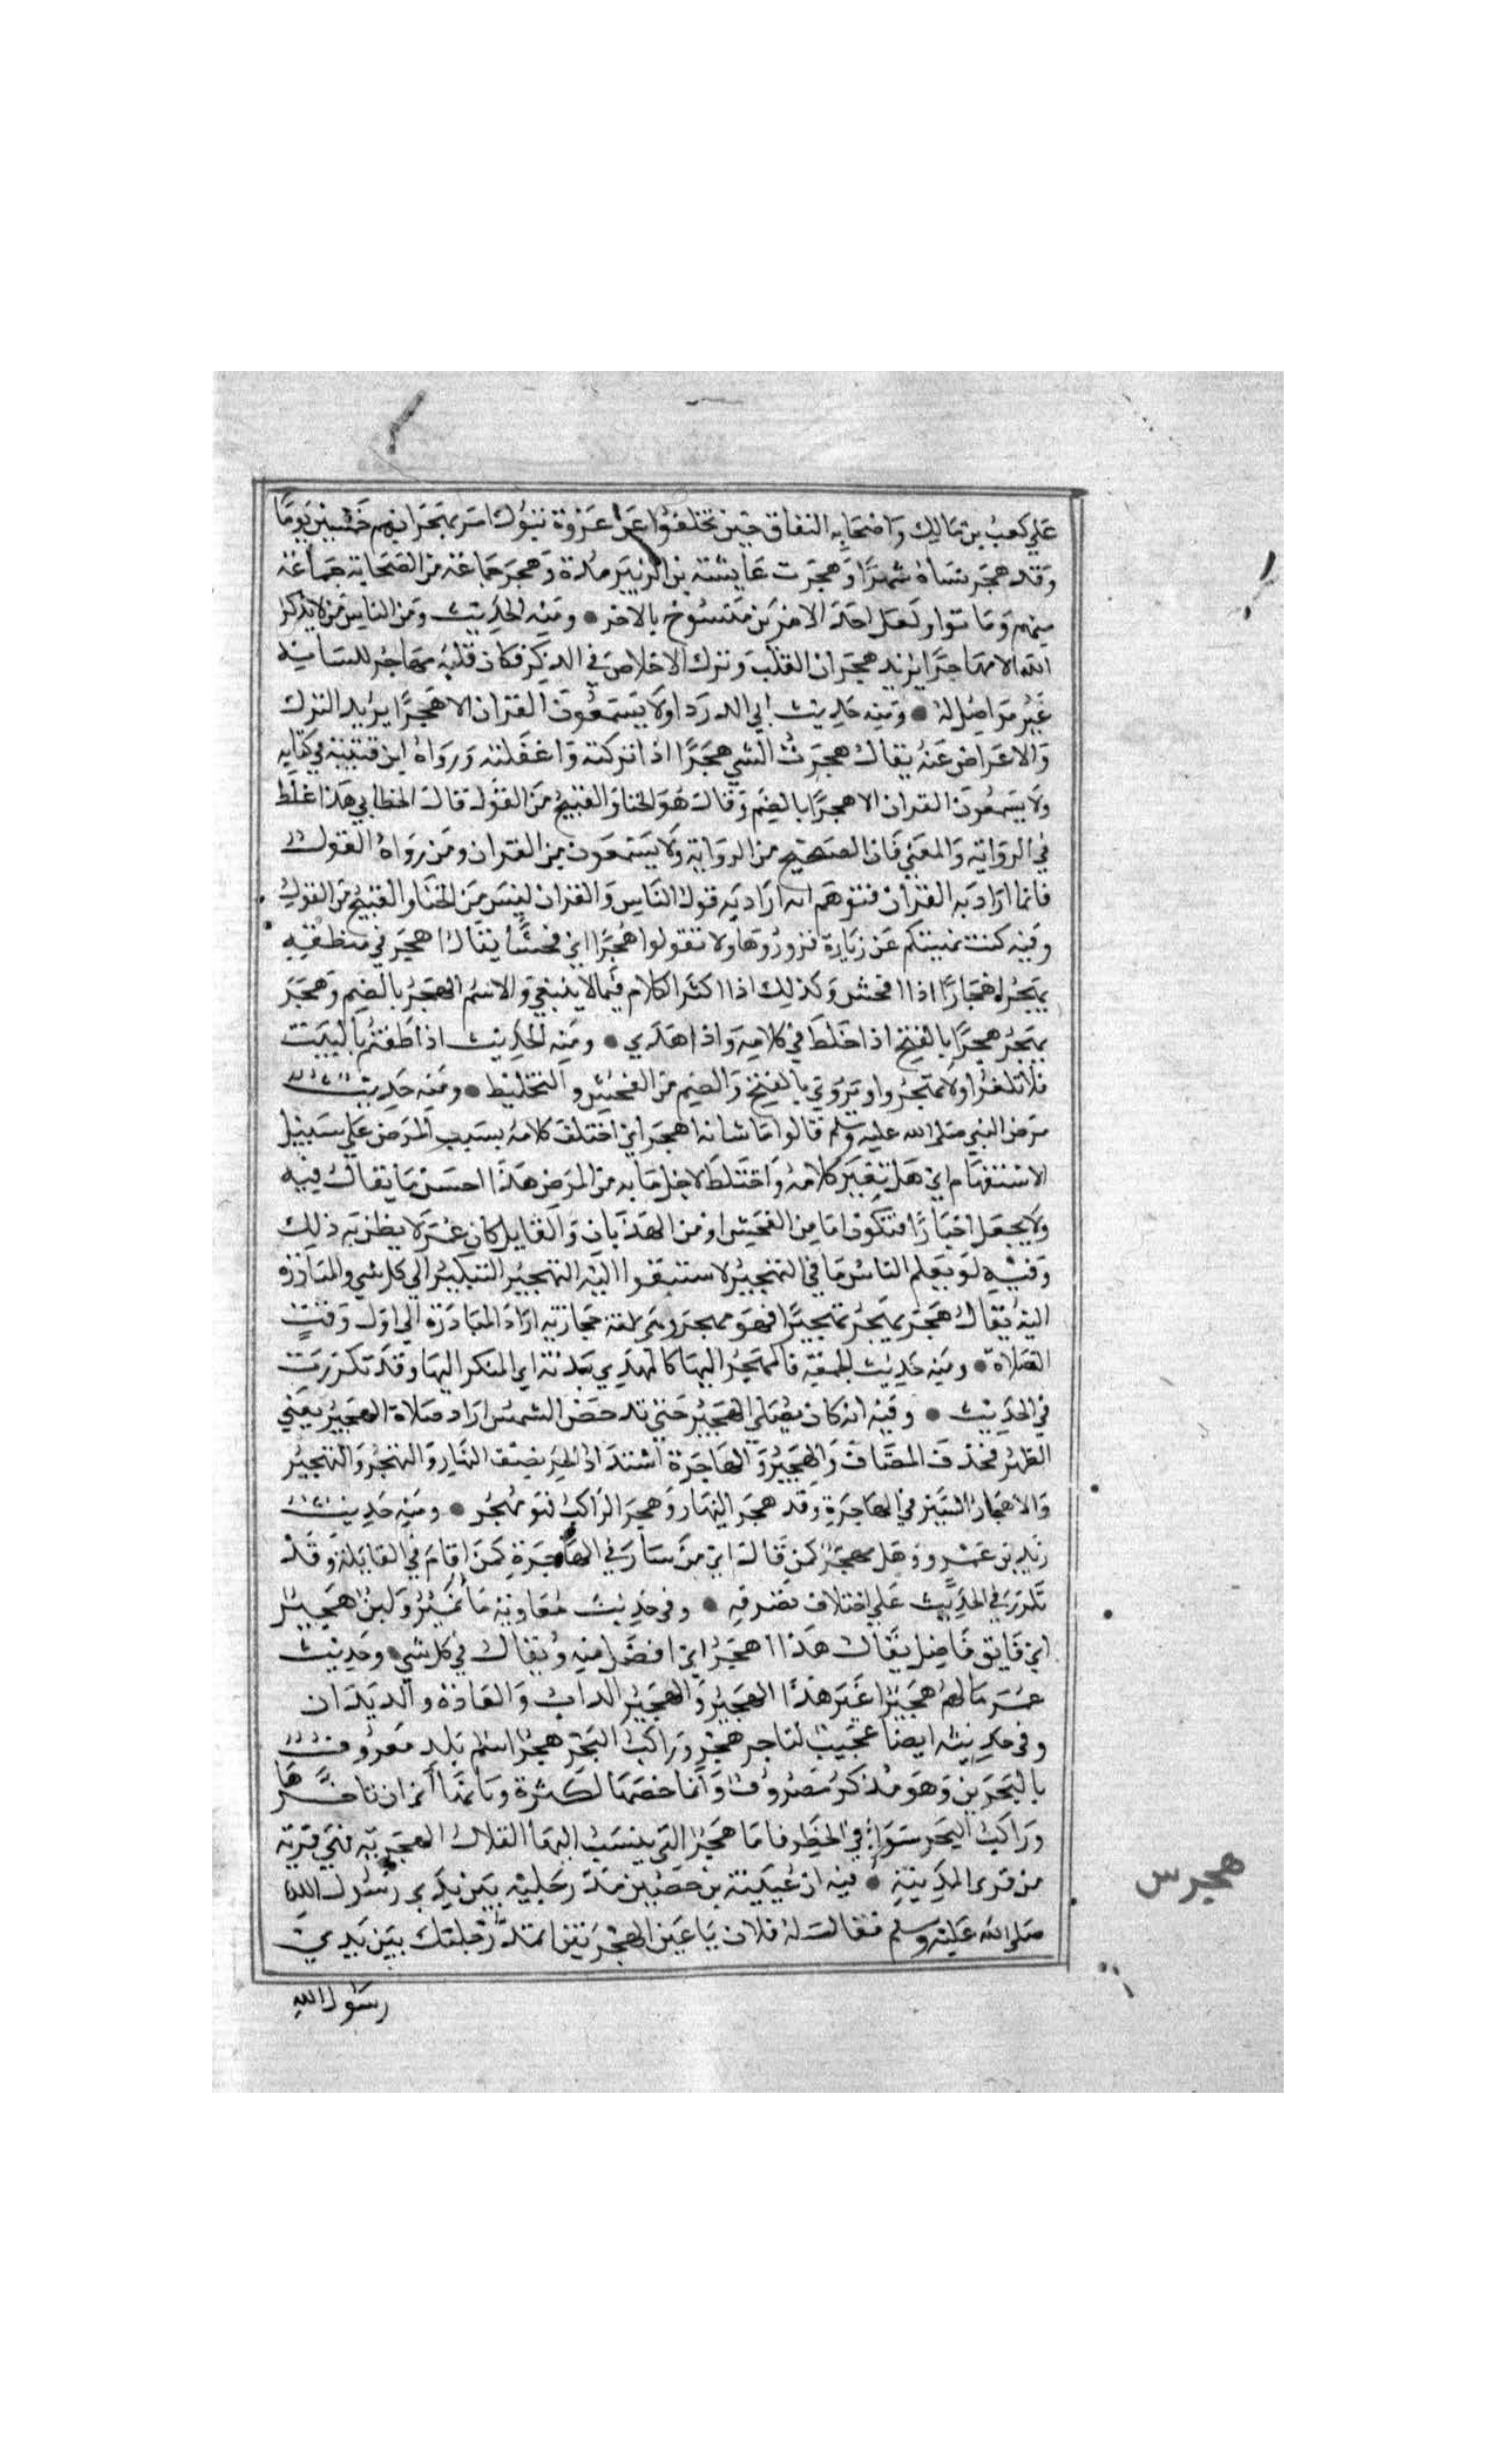 علي كعب بن مالك واصحابه النفاق حين تخلفوا عن غزوة تبوك امر بهجرانهم خمسين يوما
وقد هجر نساه شهرا وهجرت عايشة بن الزبير مدة وهجر جماعة من الصحابة جماعة
منهم وماتوا ولعل احد الامرين منسوخ بالاخر ● ومنه الحديث ومن الناس من لا يذكر
الله الا مهاجرا يريد هجران القلب وترك الاخلاص في الذكر فكان قلبه مهاجر للسانه
غير مواصل له ● ومنه حديث ابي الدردا ولا يسمعون القران الا هجرا يريد الترك
والاعراض عنه يقال هجرت الشي هجرا اذا تركته واغفلته ورواه ابن قتيبة في كتابه
ولا يسمعون القران الا هجرا بالضم وقال هو الخنا والقبيح من القول قال الخطابي هذا غلط
في الرواية والمعني فان الصحيح من الرواية ولا يسمعون من القران ومن رواه القول
فانما اراد به القران فتوهم انه اراد به قول الناس والقران ليس من الخنا والقبيح من القول
وفيه كنت نهيتكم عن زيارة فزوروها ولا تقولوا هجرا اي فحشا يقال اهجر في منطقه
يهجر اهجارا اذا افحش وكذلك اذا اكثر الكلام فيما لا ينبغي والاسم الهجر بالضم وهجر
يهجر هجرا بالفتح اذا خلط في كلامه واذا هذي ● ومنه الحديث اذا طفتم بالبيت
فلا تلغوا ولا تهجروا وتروي بالفتح والضم من الفحش والتخليط ● ومنه حديث
مرض النبي صلى الله عليه وسلم قالوا ما شانه اهجر اي اختلف كلامه بسبب المرض علي سبيل
الاستفهام اي هل تغير كلامه واختلط لاجل ما به من المرض هذا احسن ما يقال فيه
ولا يجعل اخبارا فتكون اما من الفحش او من الهذيان والقايل كان عمر ولا يظن به ذلك
وفيه لو يعلم الناس ما في التهجير لاستبقوا اليه التهجير التبكير الي كل شي والمبادرة
اليه يقال هجر يهجر تهجيرا فهو مهجر وهي لغة حجازية اراد المبادرة الي اول وقت
الصلاة ● ومنه حديث الجمعة فالمهجر اليها كالمهدي بدنة اي المبكر اليها وقد تكررت
في الحديث ● وفيه انه كان يصلي الهجير حين تدحض الشمس اراد صلاة الهجير يعني
الظهر فحذف المضاف والهجير والهاجرة اشتداد الحر نصف النهار والتهجر والتهجير
والاهجار السير في الهاجرة وقد هجر النهار وهجر الراكب فهو مهجر ● ومنه حديث
زيد بن عمرو وهل مهجر كمن قال اي من سار في الهاجرة كمن اقام في القايلة وقد
تكرر في الحديث علي اختلاف تصرفه ● وفي حديث معاوية ما نمير ولبن هجير
اي فايق فاضل يقال هذا اهجر اي افضل منه ويقال في كل شي ● وحديث
عمر ما لهم هجيرا غير هذا الهجير والهجير الداب والعادة والديدان
وفي حديثه ايضا عجبت لتاجر هجر وراكب البحر هجر اسم بلد معروف
بالبحرين وهو مذكر مصروف وانما خصها لكثرة وبائها اي ان تاجرها
وراكب البحر سوا في الخطر فاما هجر التي ينسب اليها القلال الهجرية فهي قرية
من قري المدينة ● فيه ان عيينة بن حصين مد رجليه بين يدي رسول الله
صلى الله عليه وسلم فقال له فلان يا عين الهجرس اتمد رجليك بين يدي
رسول الله
هجرس